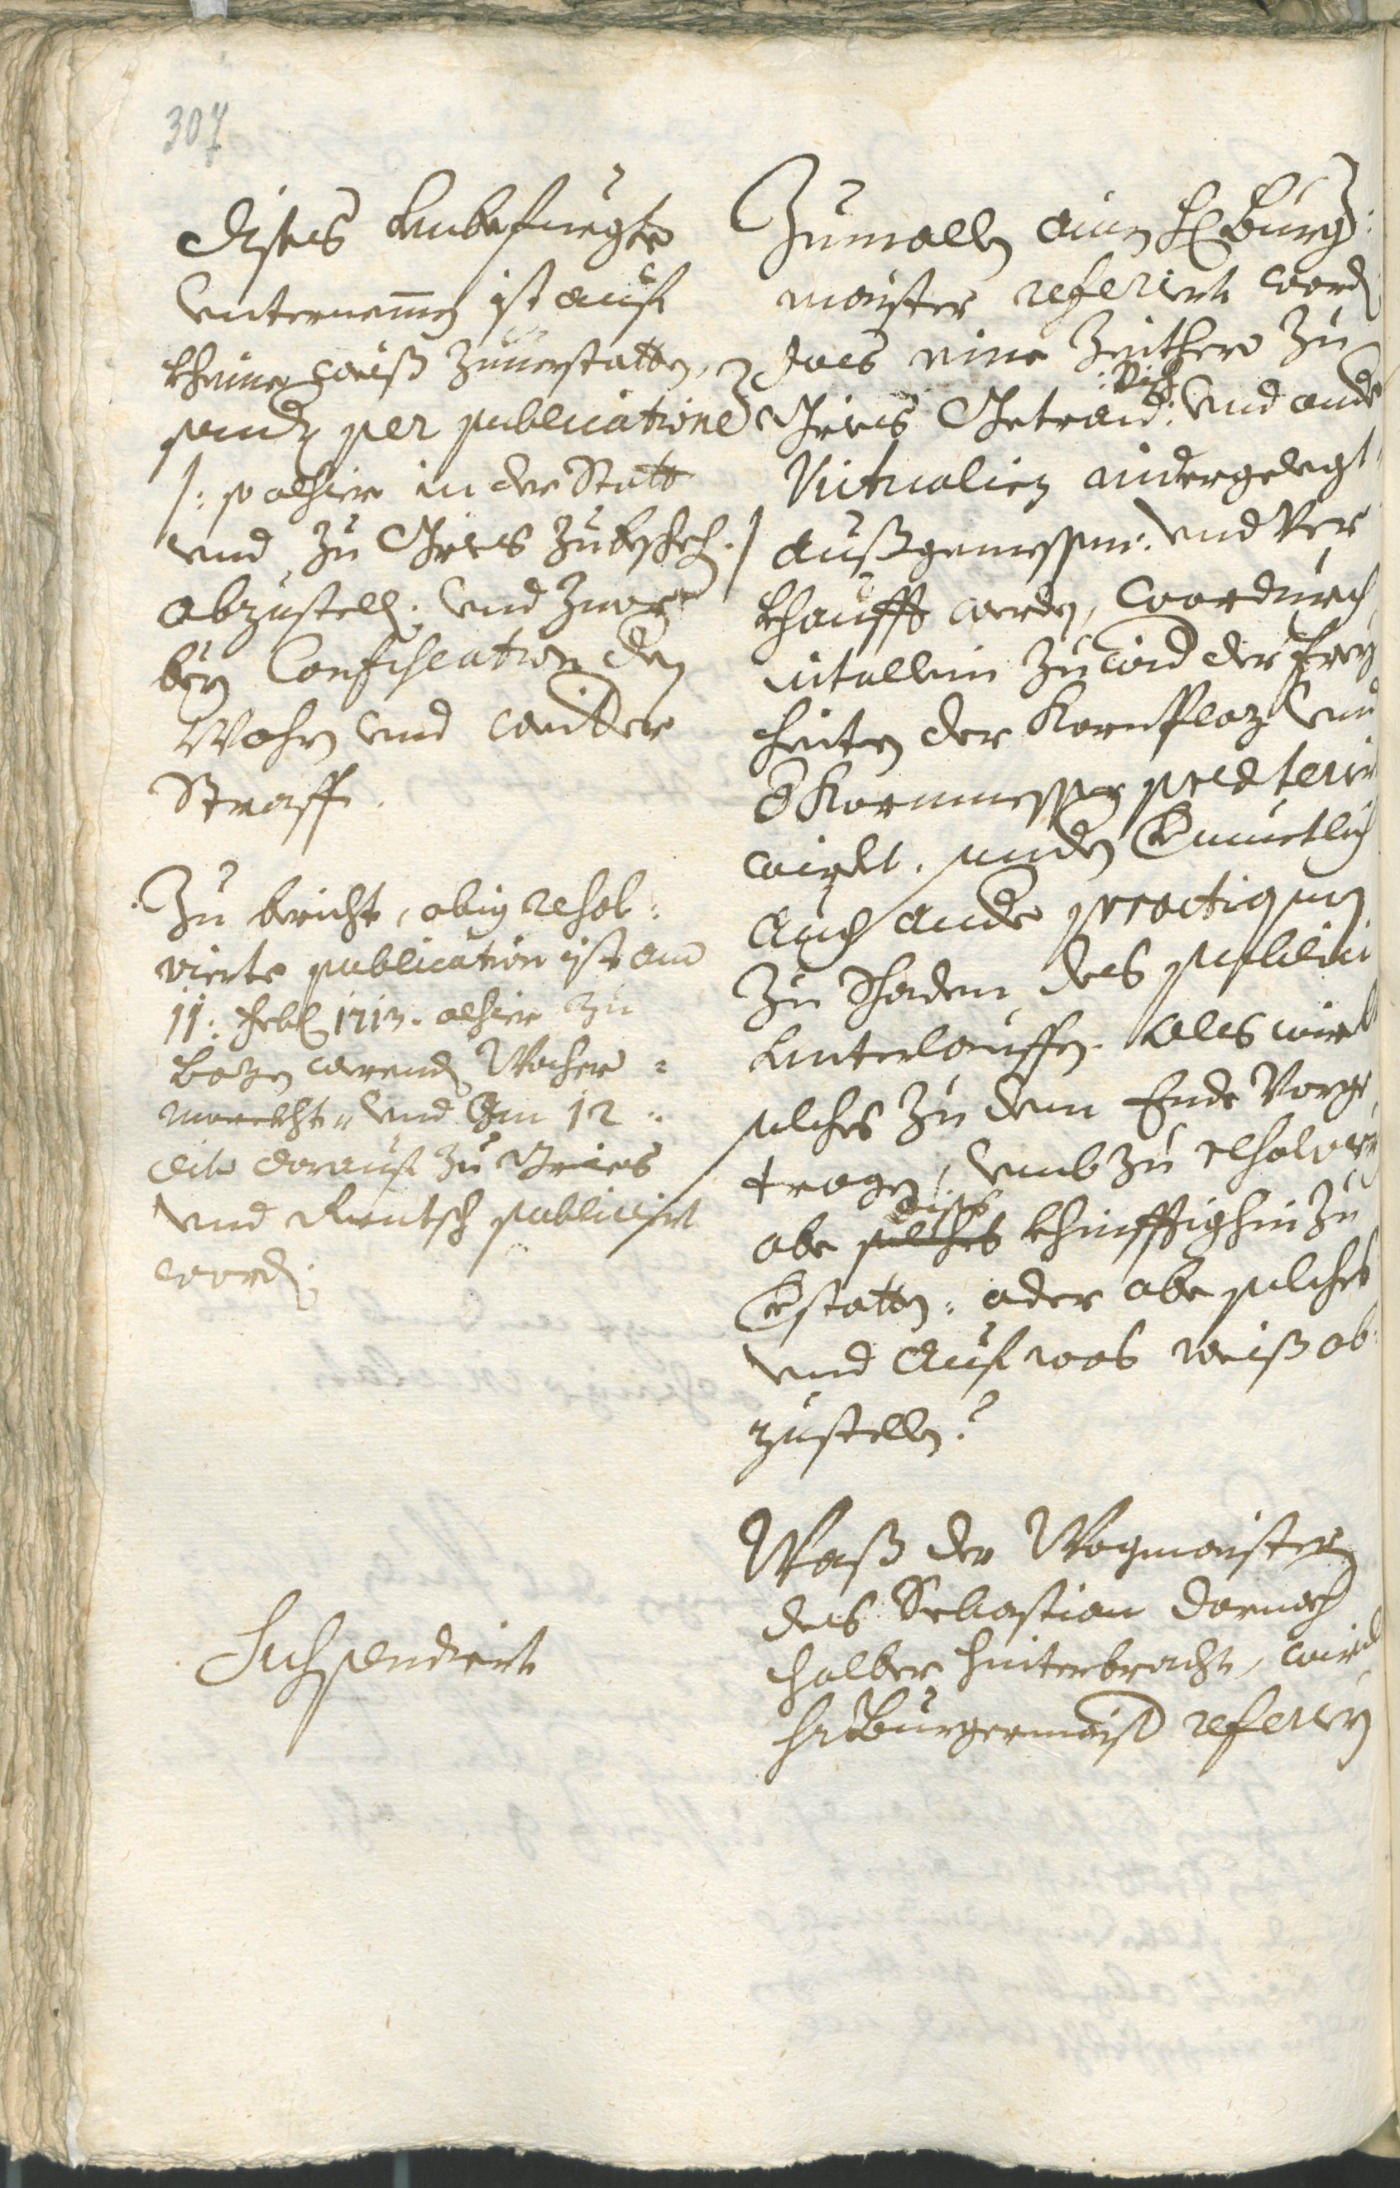 307
Dises Unbefuegte
Unternemen ist auf
kheine weiß zuuerstatten,
sonder per publicatione
/: so alhier in der Statt
und zu Gries zubeschech: /
abzustellen: und zwar
bey Confiscation der
Wahr und anderer
Straff.
Zu bericht, obig resol:
vierte publication ist am
11: Feb: 1713. alhier zu
Bozen werend Wochen=
marckht= und den 12:
dito darauf zu Gries
und Rentsch publiciert
worden.
Suspendiert
Zumallen ainem H: Burger:
maister referiert worden
das eine Zeithero zu
Gries Getraid: Vich: und andere
Victualien nidergelegt
außgemessen: und ver
khaufft werden, wordurch
nit allein zuwider der Frey
heiten der Kornplaz und
Kornmesser
wirdt, sonder vermuetlich
auch andere practiquen
zu Schaden des publici
unterlauffen. Als wirdt
solches zu dem Ende vorge
tragen, umb zu resolvieren
obe solches dises khünfftighin zu
verstatten: oder obe solches
und auf was weiß ab
zustellen?
Waß der Wagmaister
des Sebastian
halber hinterbracht, wird
H: Burgermaister referieren